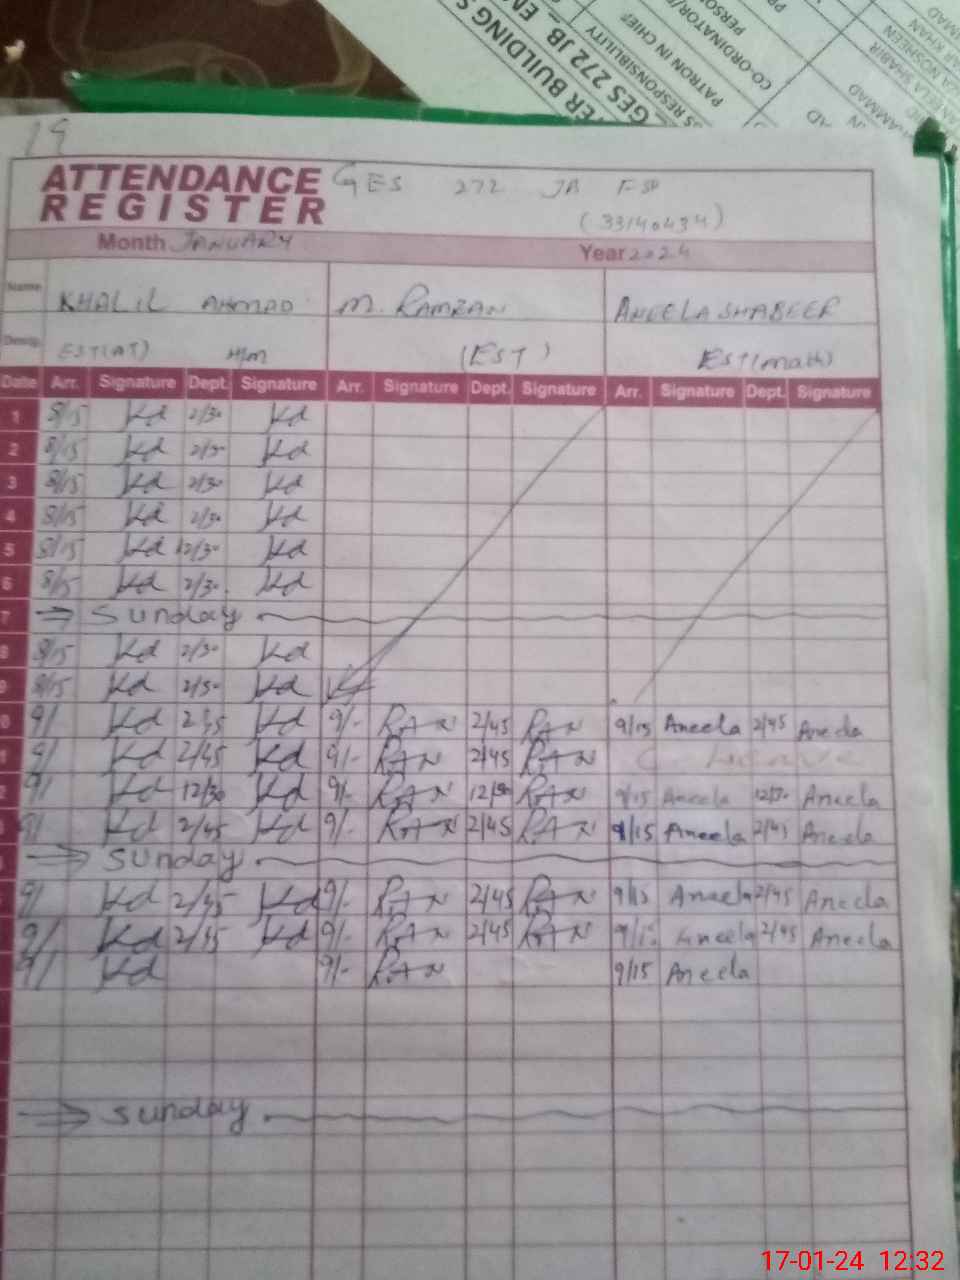 BUILDING S
GES 272 JB
S RESPONSIBILITY
PATRON IN CHIEF
CO-ORDINATOR/
19
ATTENDANCE GES 272 JB FSD
REGISTER (33140434)
Month JANUARY Year 2024
Name KHALIL AHMAD M. RAMZAN ANEELA SHABEER
Desig. EST(AT) H/M (EST) EST(math)
Date Arr. Signature Dept. Signature Arr. Signature Dept. Signature Arr. Signature Dept. Signature
1 8/15 Kd 2/30 Kd
2 8/15 Kd 2/30 Kd
3 8/15 Kd 2/30 Kd
4 8/15 Kd 2/30 Kd
5 8/15 Kd 12/30 Kd
6 8/15 Kd 2/30 Kd
7 Sunday
8 8/15 Kd 2/30 Kd
9 8/15 Kd 2/30 Kd
0 9/ Kd 2/45 Kd 9/- RAN 2/45 RAN 9/15 Aneela 2/45 Aneela
1 9/ Kd 2/45 Kd 9/- RAN 2/45 RAN C. Leave
2 9/ Kd 12/30 Kd 9/- RAN 12/30 RAN 9/15 Aneela 12/30 Aneela
9/ Kd 2/45 Kd 9/- RAN 2/45 RAN 9/15 Aneela 2/45 Aneela
Sunday
9/ Kd 2/45 Kd 9/- RAN 2/45 RAN 9/15 Aneela 2/45 Aneela
9/ Kd 2/45 Kd 9/- RAN 2/45 RAN 9/15 Aneela 2/45 Aneela
9/ Kd 9/- RAN 9/15 Aneela
Sunday
17-01-24 12:32